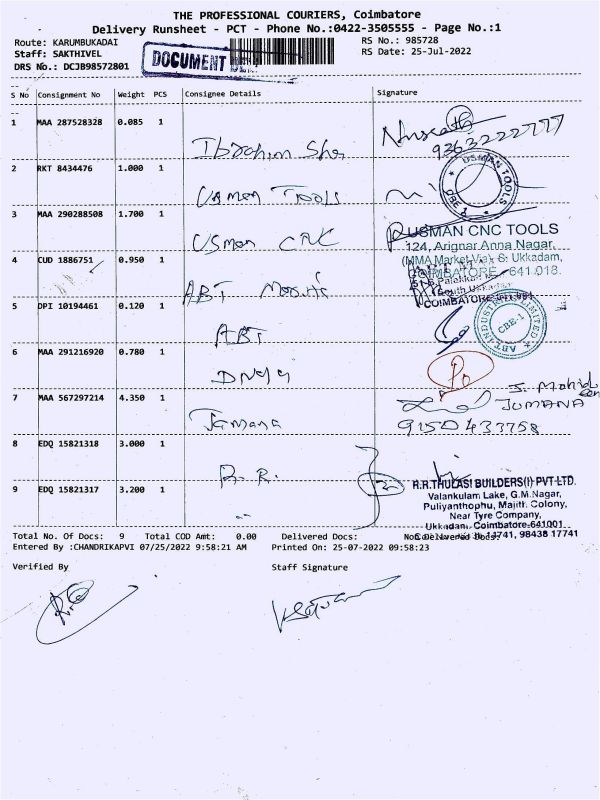 THE PROFESSIONAL COURIERS, Coimbatore
Delivery Runsheet - PCT - Phone No.:0422-3505555 - Page No.:1
Route: KARUMBUKADAI RS No.: 985728
Staff: SAKTHIVEL RS Date: 25-Jul-2022
DRS No.: DCJB98572801
DOCUMENT
S No Consignment No Weight PCS Consignee Details Signature
1 MAA 287528328 0.085 1
Ibrahim Sha 9363222777
2 RKT 8434476 1.000 1
Usman Tools USMAN TOOLS CBE 1
3 MAA 290288508 1.700 1
Usman CNC USMAN CNC TOOLS
124, Arignar Anna Nagar,
(MMA Market Via) S. Ukkadam,
COIMBATORE - 641 018.
4 CUD 1886751 0.950 1
ABT
South Ukkadam
COIMBATORE
5 DPI 10194461 0.120 1
ABT ABT INDUSTRIES LIMITED CBE-1
6 MAA 291216920 0.780 1
7 MAA 567297214 4.350 1
Jamana JUMANA
9150433758
8 EDQ 15821318 3.000 1
R.R.
R.R.THULASI BUILDERS(I) PVT LTD.
9 EDQ 15821317 3.200 1
Valankulam Lake, G.M.Nagar,
Puliyanthophu, Majith Colony,
Near Tyre Company,
Ukkadam, Coimbatore-641001
14741, 98438 17741
Total No. Of Docs: 9 Total COD Amt: 0.00 Delivered Docs: Not Delivered Docs:
Entered By :CHANDRIKAPVI 07/25/2022 9:58:21 AM Printed On: 25-07-2022 09:58:23
Verified By Staff Signature